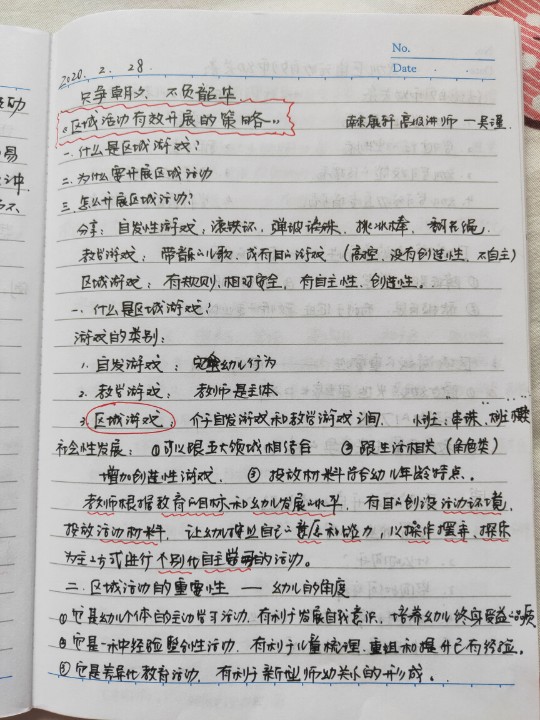 No.
2020. 2. 28.
Date
只争朝夕 不负韶华
《区域活动有效开展的策略》 高级讲师 —吴
一. 什么是区域游戏?
二. 为什么要开展区域活动
三. 怎么开展区域活动?
分享: 自发性游戏: 滚铁环、弹玻璃珠、挑冰棒、翻花绳
教学游戏: 带着儿歌, 或有目的游戏 (高控, 没有创造性, 不自主)
区域游戏: 有规则, 相对安全, 有自主性、创造性。
一. 什么是区域游戏?
游戏的类别:
1. 自发游戏: 幼儿行为
2. 教学游戏: 教师是主体
3. 区域游戏: 介于自发游戏和教学游戏之间. 小班: 串珠,
社会性发展: ①可以跟五大领域相结合 ②跟生活相关(角色类)
增加创造性游戏. ③投放材料符合幼儿年龄特点。
教师根据教育的目标和幼儿发展的水平, 有目的创设活动环境,
投放活动材料, 让幼儿按照自己的意愿和能力, 以操作摆弄、探索
为主的方式进行个别化自主学习的活动。
二. 区域活动的重要性 —— 幼儿的角度
①它是幼儿个体的主动学习活动, 有利于发展自我意识、培养幼儿终身受益品质
②它是一种经验整创性活动, 有利于儿童梳理、重组和提升已有经验。
③它是差异化教育活动, 有利于新型师幼关系的形成。